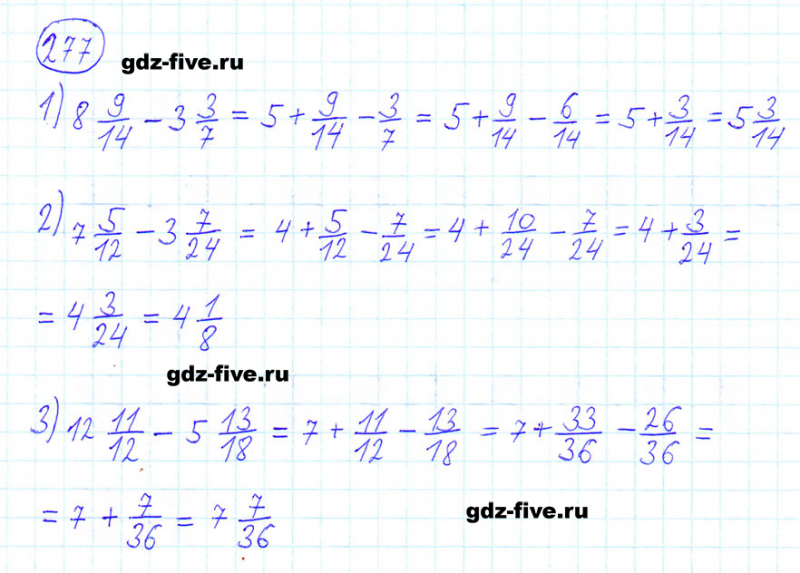 277
gdz-five.ru
1) 8 9/14 - 3 3/7 = 5 + 9/14 - 3/7 = 5 + 9/14 - 6/14 = 5 + 3/14 = 5 3/14
2) 7 5/12 - 3 7/24 = 4 + 5/12 - 7/24 = 4 + 10/24 - 7/24 = 4 + 3/24 =
= 4 3/24 = 4 1/8
gdz-five.ru
3) 12 11/12 - 5 13/18 = 7 + 11/12 - 13/18 = 7 + 33/36 - 26/36 =
= 7 + 7/36 = 7 7/36
gdz-five.ru